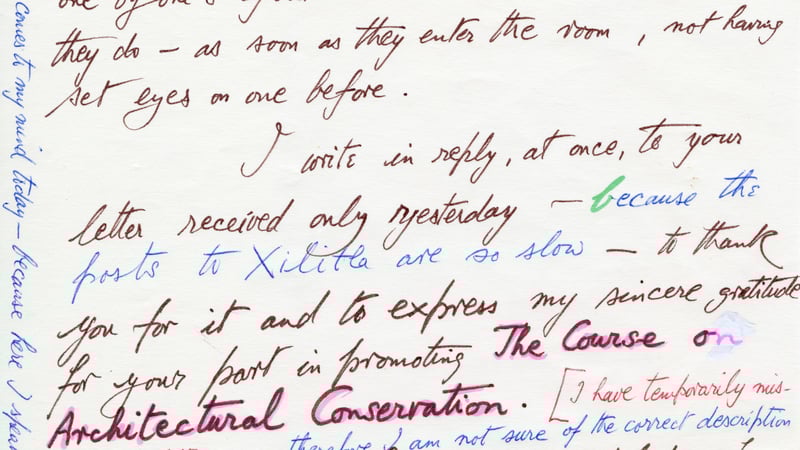 they do — as soon as they enter the room, not having
set eyes on one before.
I write in reply, at once, to your
letter received only yesterday — because the
posts to Xilitla are so slow — to thank
you for it and to express my sincere gratitude
for your part in promoting The Course on
Architectural Conservation. [I have temporarily mis-
therefore I am not sure of the correct description
comes to my mind today — because here I